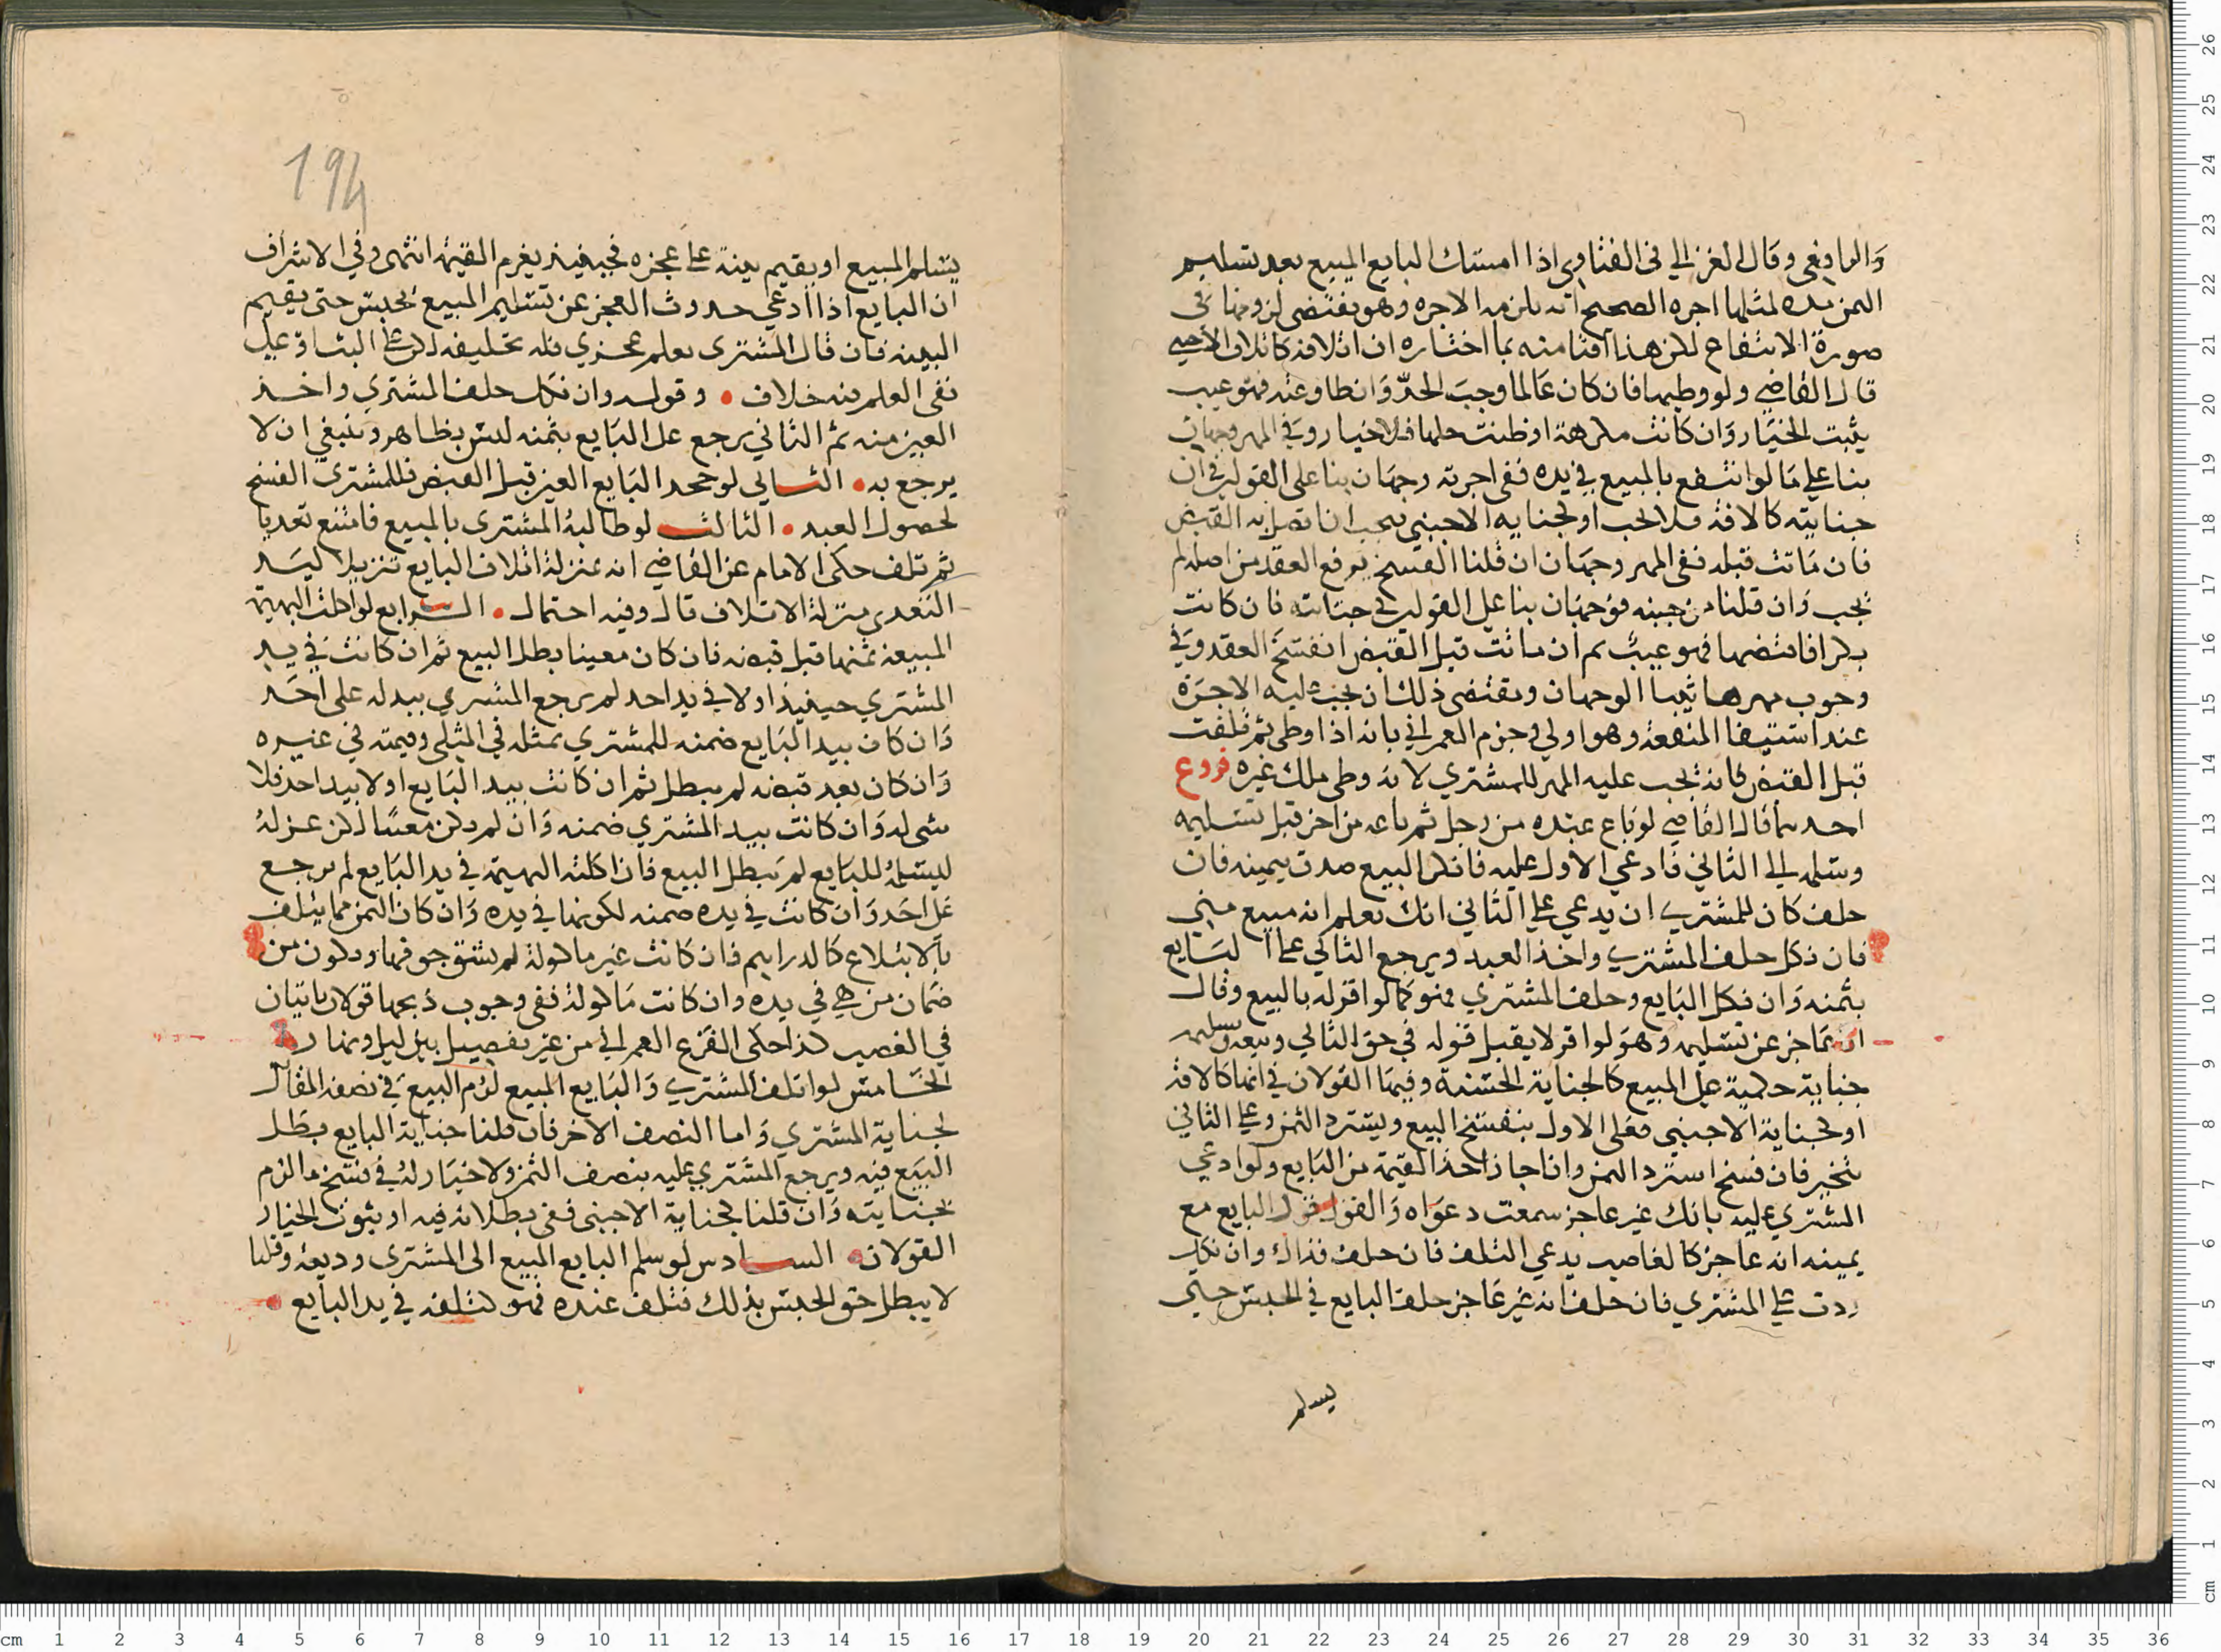 والرافعي وقال الغزالي في الفتاوى اذا امسك البايع المبيع بعد تسليم
الثمن مده لمثلها اجره الصحيح انه يلزمه الاجره وهو يقتضي لزومها في
صورة الانتفاع لكن هذا افتا منه بما اختاره ان اتلافه كاتلاف الاجنبي
قال القاضي ولو وطيها فان كان عالما وجب الحد وان طاوعته فهو عيب
يثبت الخيار وان كانت مكرهة او ظنت حلها فلا خيار وفي المهر وجهان
بنا على مالو انتفع بالمبيع في يده ففي اجرته وجهان بنا على القولين في ان
جنايته كالافة فلا تجب او كجنايه الاجنبي فيجب ان اتصل به القبض
فان ماتت قبله ففي المهر وجهان ان قلنا الفسخ يرفع العقد من اصله لم
تجب وان قلنا من حينه فوجهان بنا على القولين في جنايته فان كانت
بكرا فاقتضها فهو عيب ثم ان ماتت قبل القبض انفسخ العقد وفي
وجوب مهرها ثيبا الوجهان ويقتضي ذلك ان يجب عليه الاجرة
عند استيفا المنفعة وهو اولى وجزم العمراني بانه اذا وطي ثم تلفت
قبل القبض فانه يجب عليه المهر للمشتري لانه وطي ملك غيره فروع
احدها قال القاضي لو باع عبده من رجل ثم باعه من اخر قبل تسليمه
وسلمه الى الثاني فادعى الاول عليه فانكر البيع صدق بيمينه فان
حلف كان للمشتري ان يدعي على الثاني انك تعلم انه مبيع مني
فان نكل حلف المشتري واخذ العبد ويرجع الثاني على البايع
بثمنه وان نكل البايع وحلف المشتري فهو كما لو اقر له بالبيع وقال
انا عاجز عن تسليمه وهو لو اقر لا يقبل قوله في حق الثاني وبيعه وتسليمه
جناية حكمية على المبيع كالجناية الحسية وفيها القولان في انها كالافة
او كجناية الاجنبي فعلى الاول ينفسخ البيع ويسترد الثمن وعلى الثاني
يتخير فان فسخ استرد الثمن وان اجاز اخذ القيمة من البايع ولو ادعى
المشتري عليه بانك غير عاجز سمعت دعواه والقول قول البايع مع
يمينه انه عاجز كالغاصب يدعي التلف فان حلف فذاك وان نكل
ردت على المشتري فان حلف انه غير عاجز حلف البايع في الحبس حتى
يسلم
194
يسلم المبيع او يقيم بينة على عجزه فحينيذ يغرم القيمة انتهى وفي الاشراف
ان البايع اذا ادعى حدوث العجز عن تسليم المبيع يحبس حتى يقيم
البينه فان قال المشتري يعلم عجزي فله تحليفه لكن على البتات او على
نفي العلم فيه خلاف وقوله وان نكل حلف المشتري واخذ
العين منه ثم الثاني يرجع على البايع بثمنه ليس بظاهر وينبغي ان لا
يرجع به الثاني لو جحد البايع العين قبل القبض فللمشتري الفسخ
لحصول العبد الثالث لو طالبه المشتري بالمبيع فامتنع تعديا
ثم تلف حكى الامام عن القاضي انه بمنزلة اتلاف البايع تنزيلا ليد
التعدي منزلة الاتلاف قال وفيه احتمال الرابع لو اكلت البهيمة
المبيعة ثمنها قبل قبضه فان كان معينا بطل البيع ثم ان كانت في يد
المشتري حينيذ او لا في يد احد لم يرجع المشتري ببدله على احد
وان كان بيد البايع ضمنه للمشتري بمثله في المثلي وقيمته في غيره
وان كان بعد قبضه لم يبطل ثم ان كانت بيد البايع او لا بيد احد فلا
شي له وان كانت بيد المشتري ضمنه وان لم يكن معينا لكن عزله
ليسلمه للبايع لم يبطل البيع فان اكلته البهيمة في يد البايع لم يرجع
على احد وان كانت في يده ضمنه لكونها في يده وان كان الثمن مما يتلف
بالابتلاع كالدراهم فان كانت غير ماكولة لم يشق جوفها ويكون من
ضمان من هي في يده وان كانت ماكولة ففي وجوب ذبحها قولان ياتيان
في الغصب كذا حكى الفرع العمراني من غير تفصيل بين ليل ونهار
الخامس لو اتلف المشتري والبايع المبيع لزم البيع في نصفه المقابل
لجناية المشتري واما النصف الاخر فان قلنا جناية البايع بطل
البيع فيه ويرجع المشتري عليه بنصف الثمن ولا خيار له في فسخ ما لزم
بجنايته وان قلنا كجناية الاجنبي ففي بطلانه فيه او ثبوت الخيار
القولان السادس لو سلم البايع المبيع الى المشتري وديعة وقلنا
لا يبطل حق الحبس بذلك فتلف عنده فهو كتلفه في يد البايع